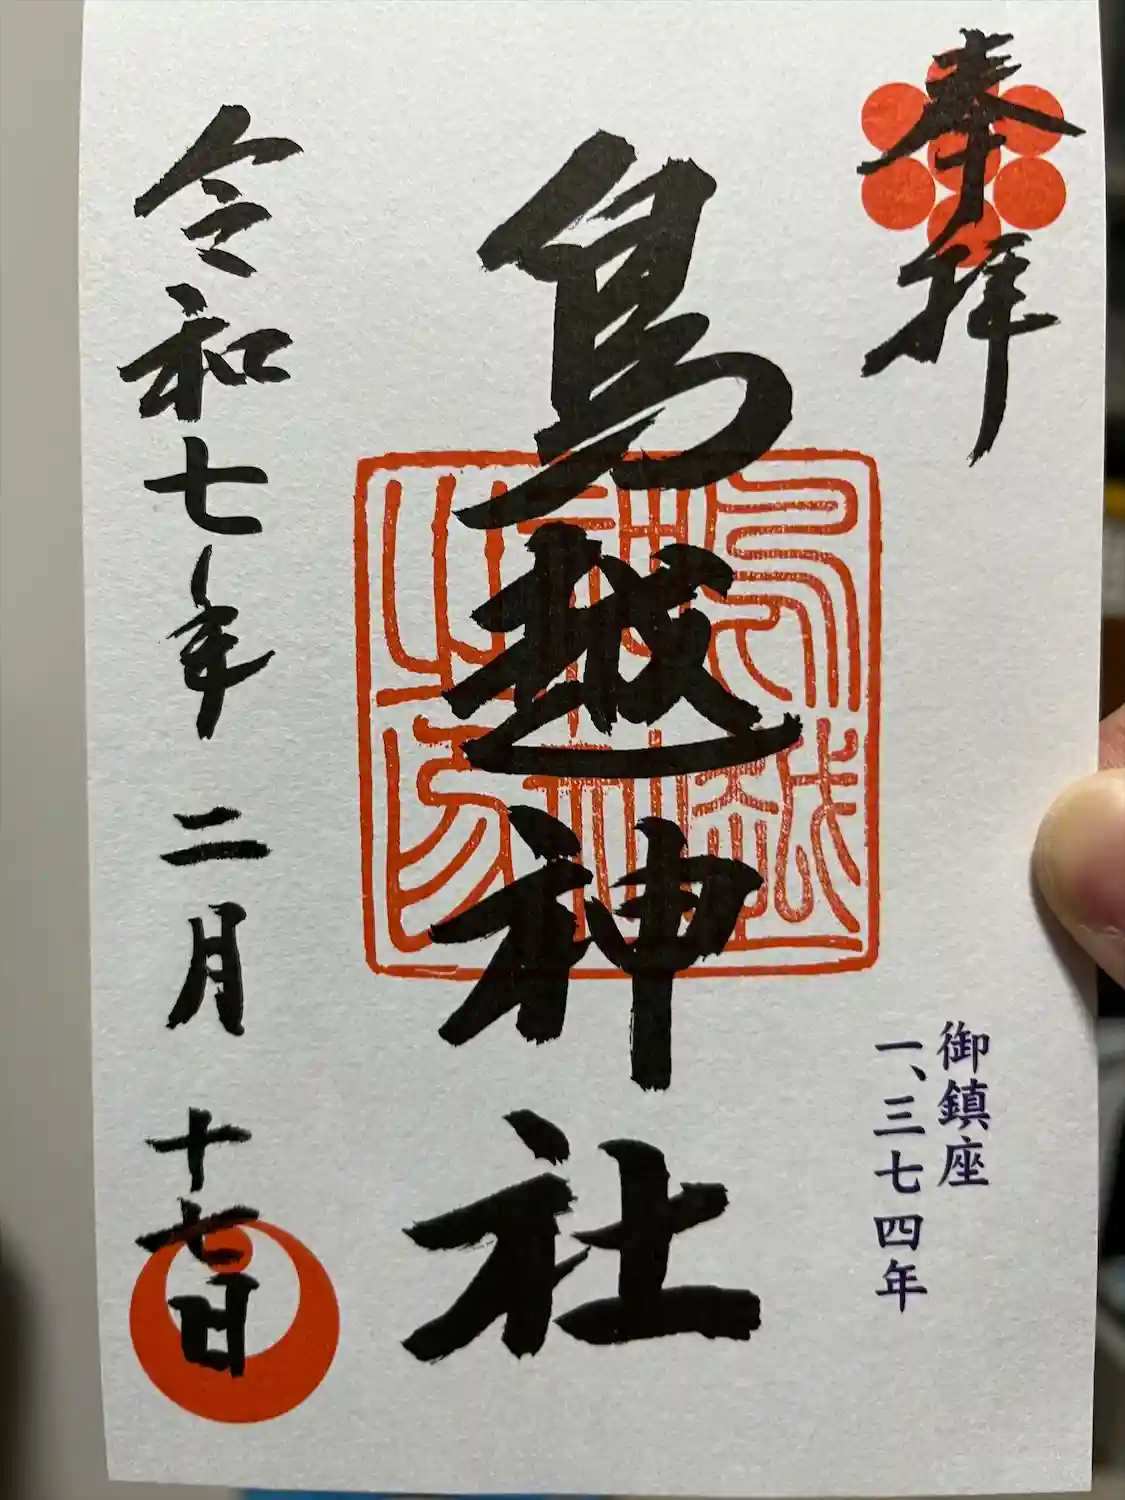 奉拝
御鎮座
一、三七四年
鳥越神社
鳥越
神社
之印
令和七年 二月 十七日